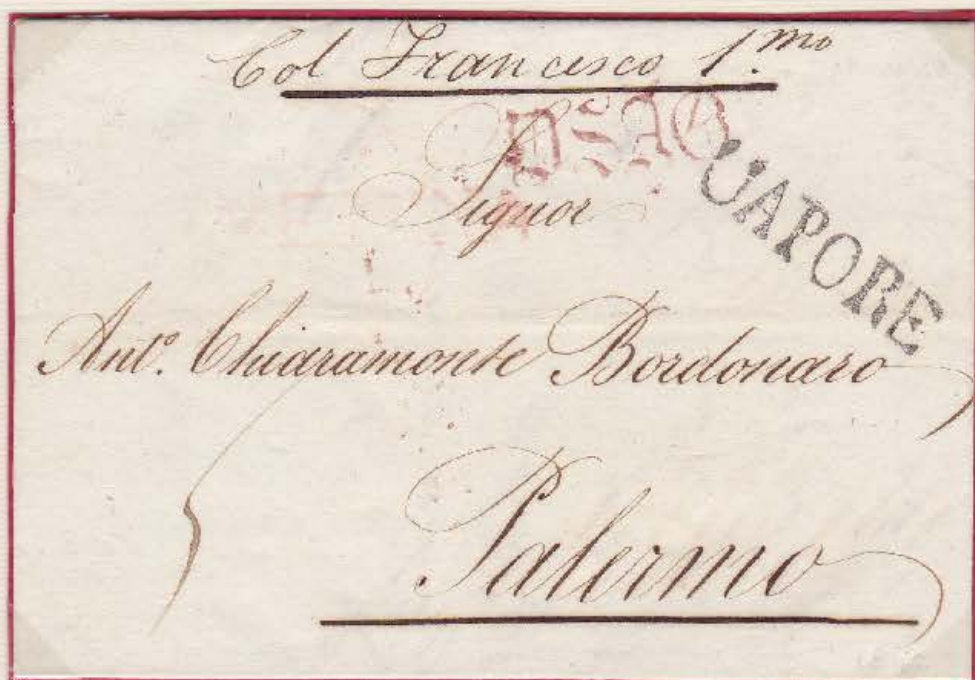 Col Francesco 1.mo
Signor
VAPORE
Anto. Chiaramonte Bordonaro
5
Palermo